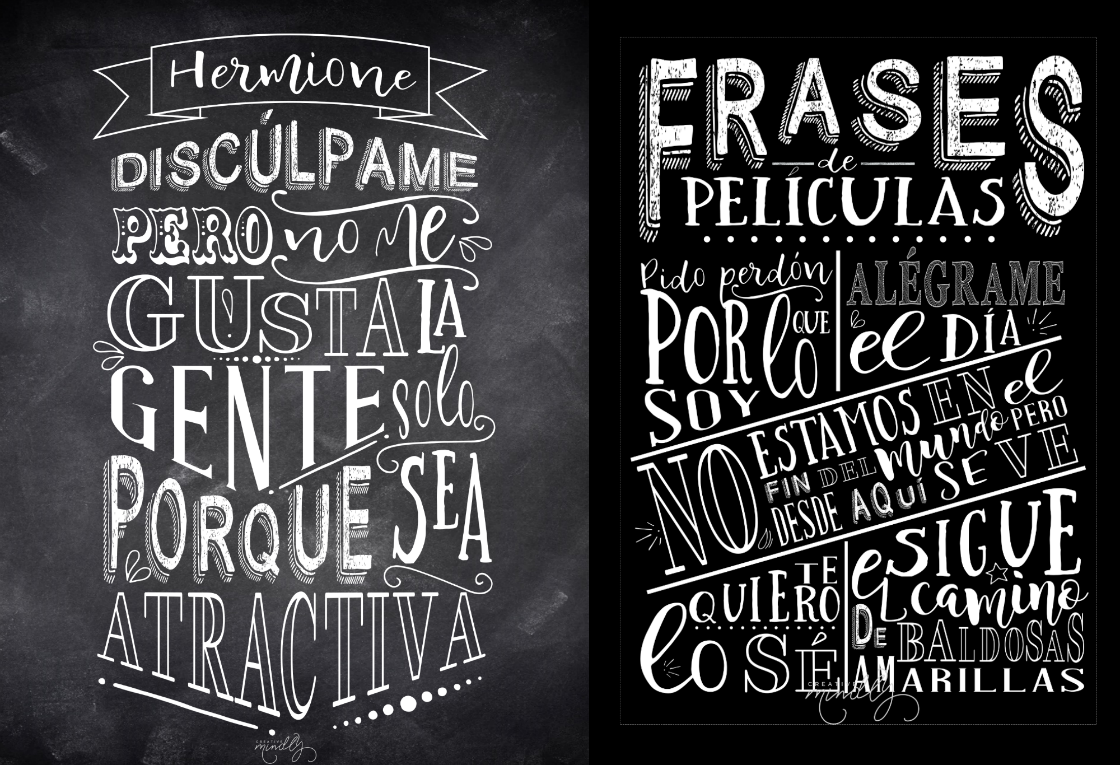 Hermione
DISCÚLPAME
PERO no Me
GUSTA LA
GENTE solo
PORQUE SEA
ATRACTIVA
CREATIVE
mindly
FRASES
de
PELÍCULAS
Pido perdón
POR lo QUE
SOY
ALÉGRAME
el DÍA
NO ESTAMOS EN el
FIN DEL mundo PERO
DESDE AQUÍ SE VE
TE
QUIERO
lo SÉ
SIGUE
eL camino
DE BALDOSAS
AMARILLAS
CREATIVE
mindly